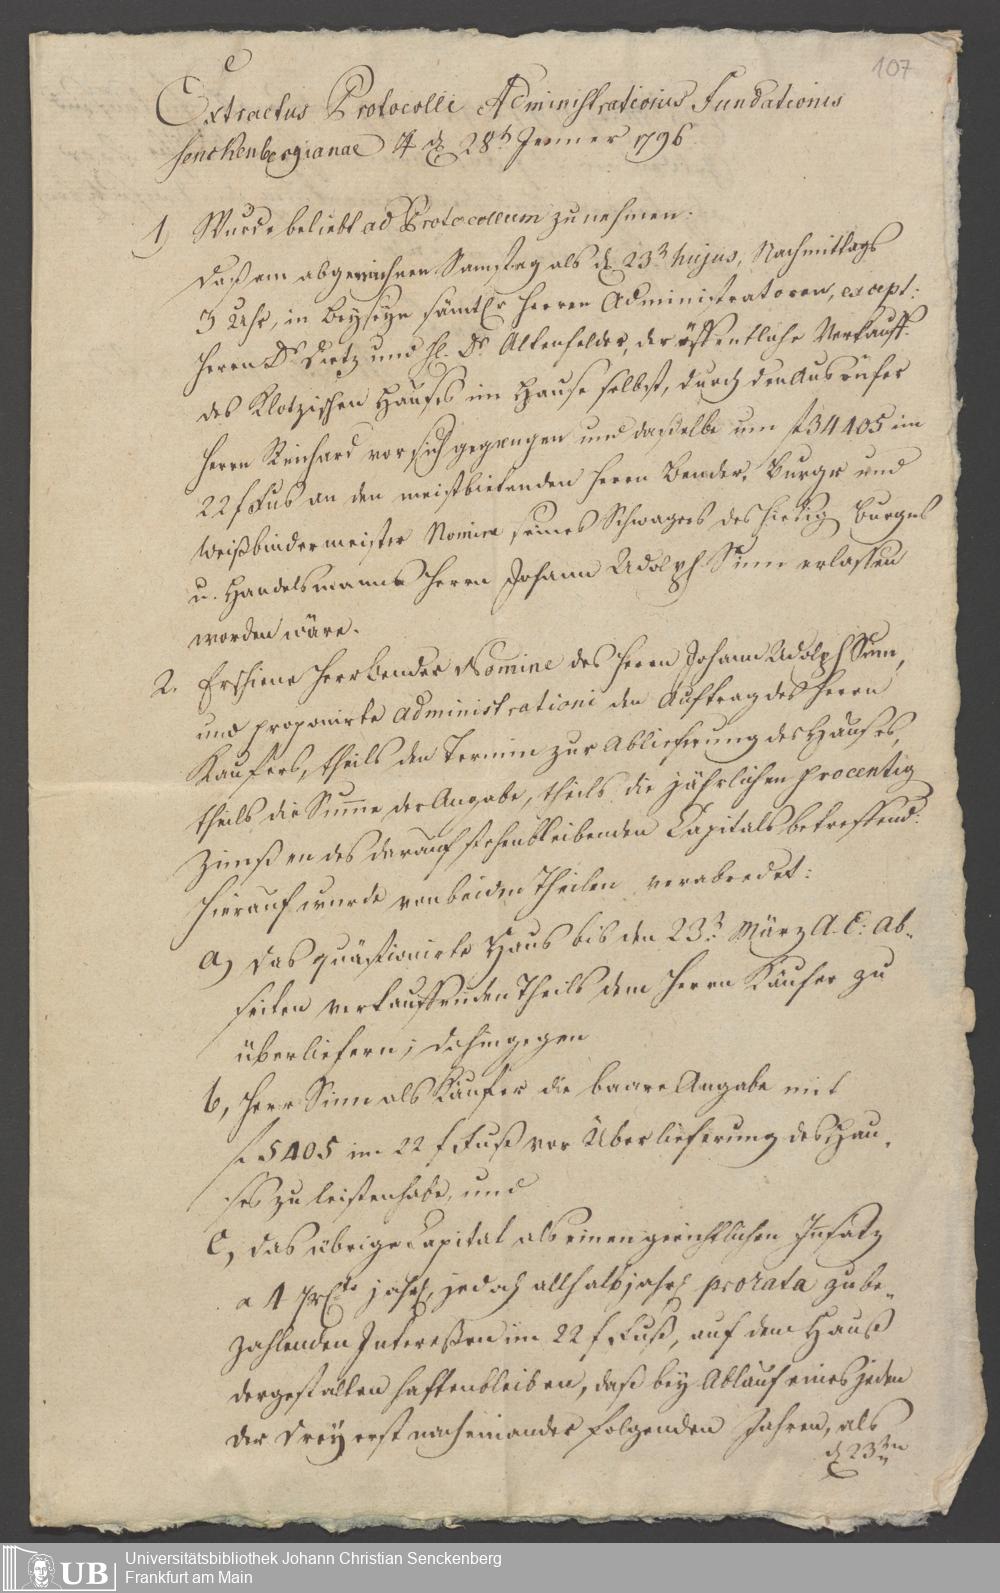 107
Extractus Protocolli Administrationis Fundationis
Senckenbergianae d. 28t Jenner 1796
1, Wurde beliebt ad Protocollum zu nehmen:
Daß am abgewichnen Samstag als d. 23t hujus, Nachmittags
3 Uhr, in Beyseyn sämtl. Herren Administratoren, except:
Herrn Dr Dietz und H. Dr Altenfelder, der öffentliche Verkauff
des Klotzischen Hauses im Hause selbst, durch den Ausrüfer
Herrn Reinhard vor sich gegangen und dasselbe um f 34405 im
22 f Fus an den meistbietenden Herrn Bender, Burger und
Weißbindermeister Nomine seines Schwagers des hiesig Burgers
u. Handelsmanns Herrn Johann Adolph Sinn erlassen
worden wäre.
2. Erschiene Herr Bender Nomine des Herrn Johann Adolph Sinn,
und proponirte Administrationi den Auftrag des Herrn
Kaufers, theils den Termin zur Ablieferung des Hauses,
theils die Summe der Angabe, theils die jährlichen procentig
Zinnßen des darauf stehenbleibenden Capitals betreffend:
Hierauf wurde von beiden Theilen verabredet:
a, das quästionirte Haus bis den 23t März A. C: ab-
seiten verkauffenden Theils dem Herrn Käufer zu
überliefern; dahingegen
b, Herr Sinn als Käufer die baare Angabe mit
f 5405 im 22 f Fuß vor Überlieferung des Hau-
ses zu leisten habe, und
C, das übrige Capital als einen gerichtlichen Insatz
a 4 prCto jährl, jedoch allhalbjährl prorata zu be-
zahlenden Interessen im 22 f Fuß, auf dem Hauß
dergestalten haften bleiben, daß bey Ablauf eines jeden
der drey erst nacheinander folgenden Jahren, als
d 23tn
UB
Universitätsbibliothek Johann Christian Senckenberg
Frankfurt am Main